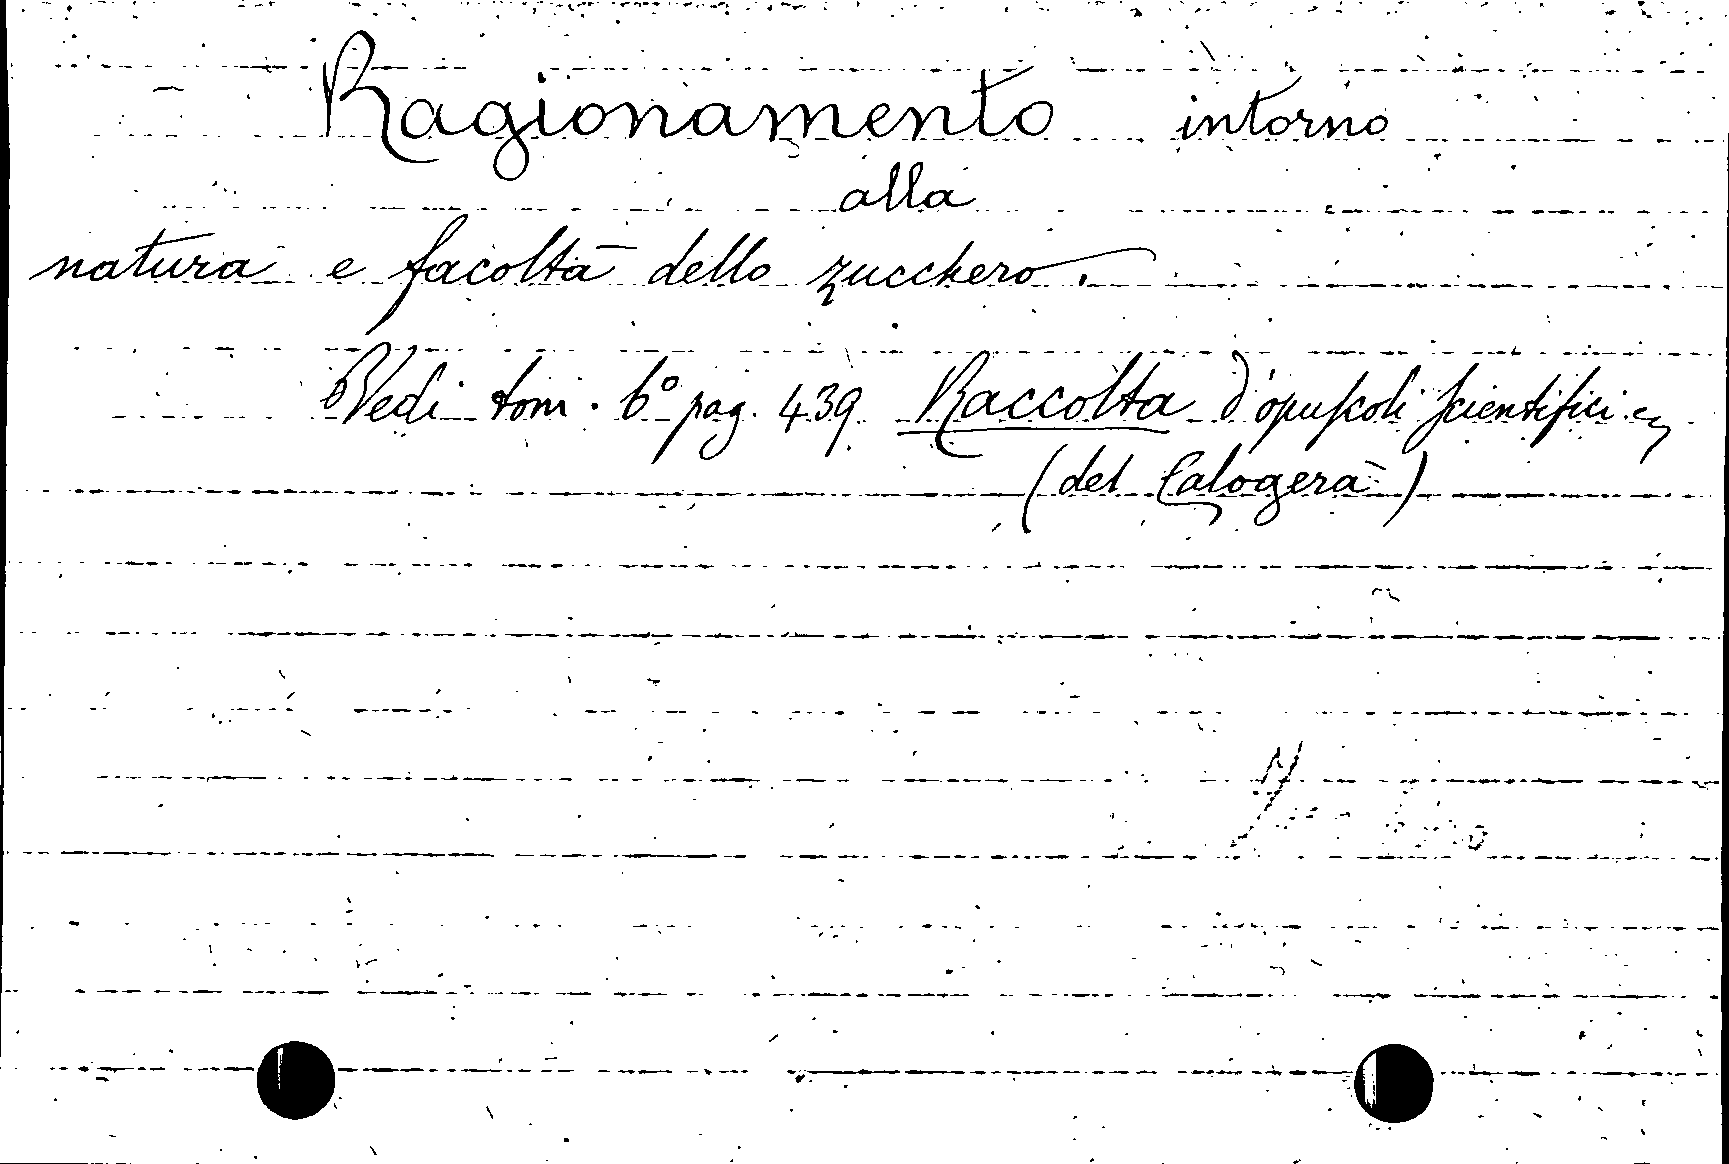 Ragionamento intorno
alla
natura e facoltà dello zucchero.
Vedi tom. 6º pag. 439 Raccolta d'opuſcoli ſcientifici e
(del Calogerà)